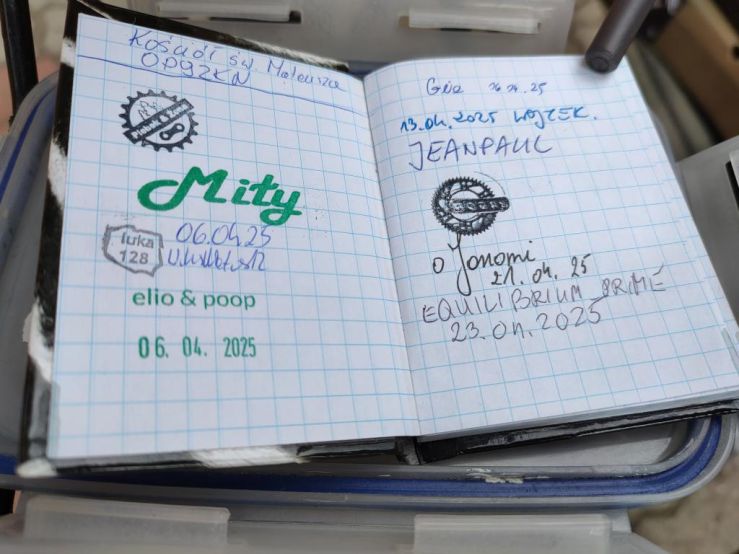 Kościół św. Mateusza
Mity
06.04.25
łuka
128
elio & poop
06. 04. 2025
13.04.2025 WOJTEK.
JEANPAUL
Jonomi
21.04.25
EQUILIBRIUM PRIME
23.04.2025